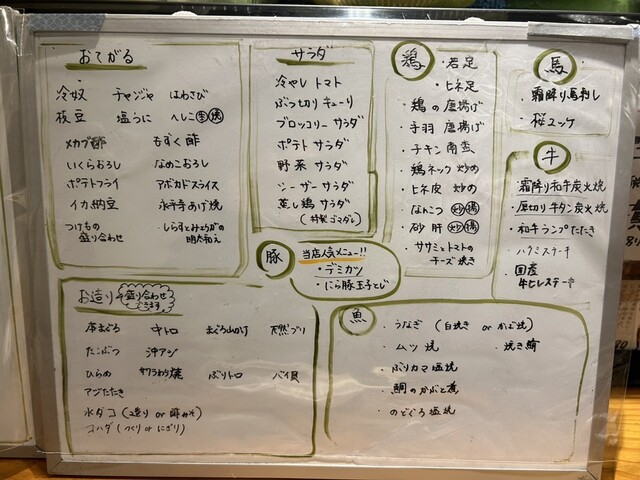 おてがる
冷奴 チャンジャ はわさび
枝豆 塩うに へしこ 生 焼
メカブ酢 もずく酢
いくらおろし なめこおろし
ポテトフライ アボカドスライス
イカ納豆 永平寺あげ焼
つけもの
盛り合わせ
しらすとみょうがの
明太和え
サラダ
冷やしトマト
ぶつ切りキューリ
ブロッコリーサラダ
ポテトサラダ
野菜サラダ
シーザーサラダ
蒸し鶏サラダ
(特製ゴマダレ)
鶏
・若足
・ヒネ足
・鶏の唐揚げ
・手羽唐揚げ
・チキン南蛮
・鶏ネック炒め
・ヒネ皮 炒め
・なんこつ 炒 揚
・砂肝 炒 揚
・ササミとトマトの
チーズ焼き
馬
・霜降り馬刺し
・桜ユッケ
牛
・霜降り和牛炭火焼
・厚切り牛タン炭火焼
・和牛ランプたたき
・ハラミステーキ
・国産
牛ヒレステーキ
豚
当店人気メニュー!!
・デミカツ
・にら豚玉子とじ
お造り
盛り合わせ
できます
本まぐろ 中トロ まぐろ山かけ 天然ブリ
たこぶつ 沖アジ
ひらめ サワラわら焼 ぶりトロ バイ貝
アジたたき
水ダコ(造り or 酢みそ)
コハダ(つくり or にぎり)
魚
・うなぎ (白焼き or かぶ焼)
・ムツ焼 ・焼き鯖
・ぶりカマ塩焼
・鯛のかぶと煮
・のどぐろ塩焼